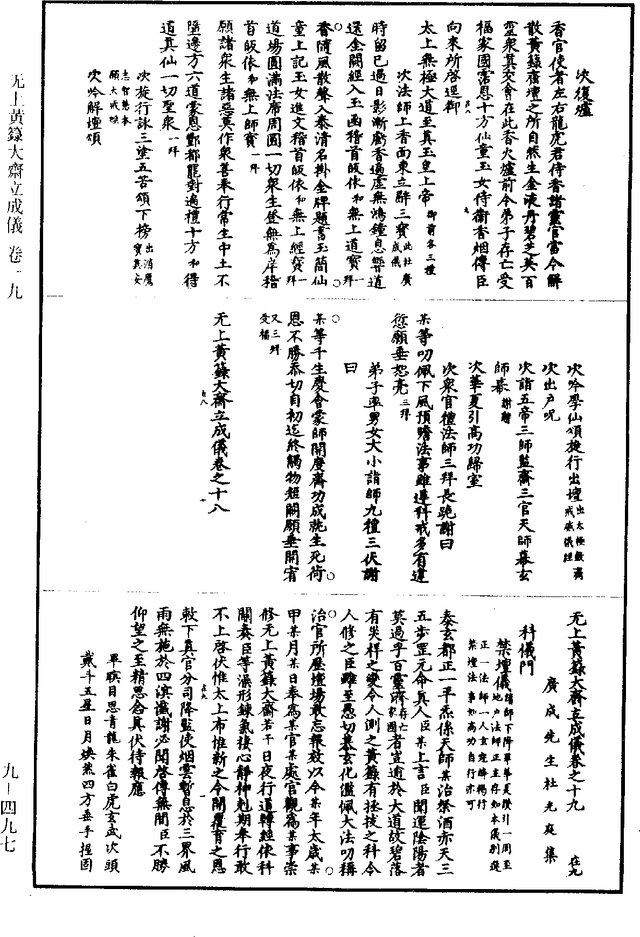 无上黃籙大齋立成儀 卷一九
九－四九七
次復爐
香官使者左右龍虎君侍香諸靈官當令解
散黃籙齋壇之所自然生金液丹碧芝英百
靈衆真交會在此香火爐前令弟子存亡受
福家國霑恩十方仙童玉女侍衞香烟傳臣
向來所啓逕御
太上無極大道至真玉皇上帝 御前各三禮
次法師上香面東立辭三寶 此杜廣成儀
時留已過日影漸虧香遍虛無鴻鐘息響道
還金闕經入玉函稽首皈依和無上道寶一拜
香隨風散聲入泰清名掛金牌題書玉簡仙
童上記玉女進文稽首皈依和無上經寶一拜
道場圓滿法席周圓一切衆生登無爲岸稽
首皈依和無上師寶一拜
願諸衆生諸惡莫作衆善奉行常生中土不
墮邊方六道蒙恩酆都罷對遍禮十方和得
道真仙一切聖衆一拜
次旋行詠三塗五苦頌下榜 出消魔寶真安志智慧本願大戒頌
次吟解壇頌
次吟學仙頌旋行出壇 出太極敷齋戒威儀經
次出戶呪
次詣五帝三師監齋三官天師幕玄
師幕 謝恩
次華夏引高功歸室
次衆官禮法師三拜長跪謝曰
某等叨佩下風預瞻法事雖遵科戒多有違
愆願垂恕亮 三拜
弟子率男女大小詣師九禮三伏謝
曰
某等千生慶會蒙師開度齋功成就生死荷
恩不勝忝切自初迄終觸物短闕願垂開宥
又三拜受福
无上黃籙大齋立成儀卷之十八
无上黃籙大齋立成儀卷之十九
廣成先生杜光庭集
科儀門
禁壇儀 諸師下降畢華夏贊引一周至地戶法師正立存如本儀別選正一法師一人玄冠絳褐行禁壇法事如高功自行亦可
泰玄都正一平炁係天師某治祭酒赤天三
五步罡元命真人臣某上言臣聞運陰陽者
莫過乎百靈濟存亡家國者豈逾於大道故碧落
有災祥之變令人測之黃籙有拯拔之科令
人修之臣雖至愚切慕玄化濫佩大法叨稱
治官所歷壇場敢忘報效以今某年太歲某
甲某月某日奉爲某官某處官觀爲某事崇
修无上黃籙大齋若干日夜行道轉經依科
關奏臣等澡形鍊氣接心靜神剋期奉行敢
不上啓伏惟太上布惟新之令開覆育之恩
敕下真官分司降監使烟雲暫息於三界風
雨無施於四溟讖謝必聞啓傳無間臣不勝
仰望之至精思念真伏待報應
畢瞑目思青龍朱雀白虎玄武次頭
戴斗五星日月煥然四方垂手捏固